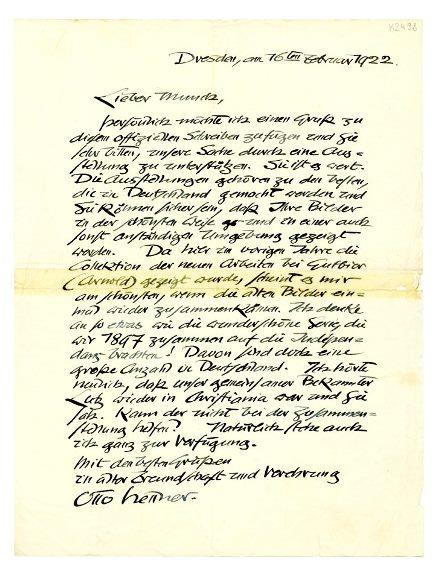 K2496
Dresden, am 16ten Februar 1922.
Lieber Munch,
persönlich möchte ich einen Gruß zu
diesem offiziellen Schreiben zufügen und Sie
sehr bitten, unsere Sache durch eine Aus=
stellung zu unterstützen. Sie ist es wert.
Die Ausstellungen gehören zu den besten,
die in Deutschland gemacht werden und
Sie können sicher sein, daß Ihre Bilder
in der schönsten Weise und in einer auch
sonst anständigen Umgebung gezeigt
werden. Da hier im vorigen Jahre die
Collektion der neuen Arbeiten bei Gutbier
(Arnold) gezeigt wurde, scheint es mir
am schönsten, wenn die alten Bilder ein=
mal wieder zusammenkämen. Ich denke
an so etwas wie die wunderschöne Serie, die
wir 1897 zusammen auf die Indépen=
dans brachten! Davon sind doch eine
große Anzahl in Deutschland. Ich hörte
neulich, daß unser gemeinsamer Bekannter
wieder in Christiania war und Sie
sah. Kann der nicht bei der Zusammen=
stellung helfen? Natürlich stehe auch
ich ganz zur Verfügung.
Mit den besten Grüßen
in alter Freundschaft und Verehrung
Otto Hettner.